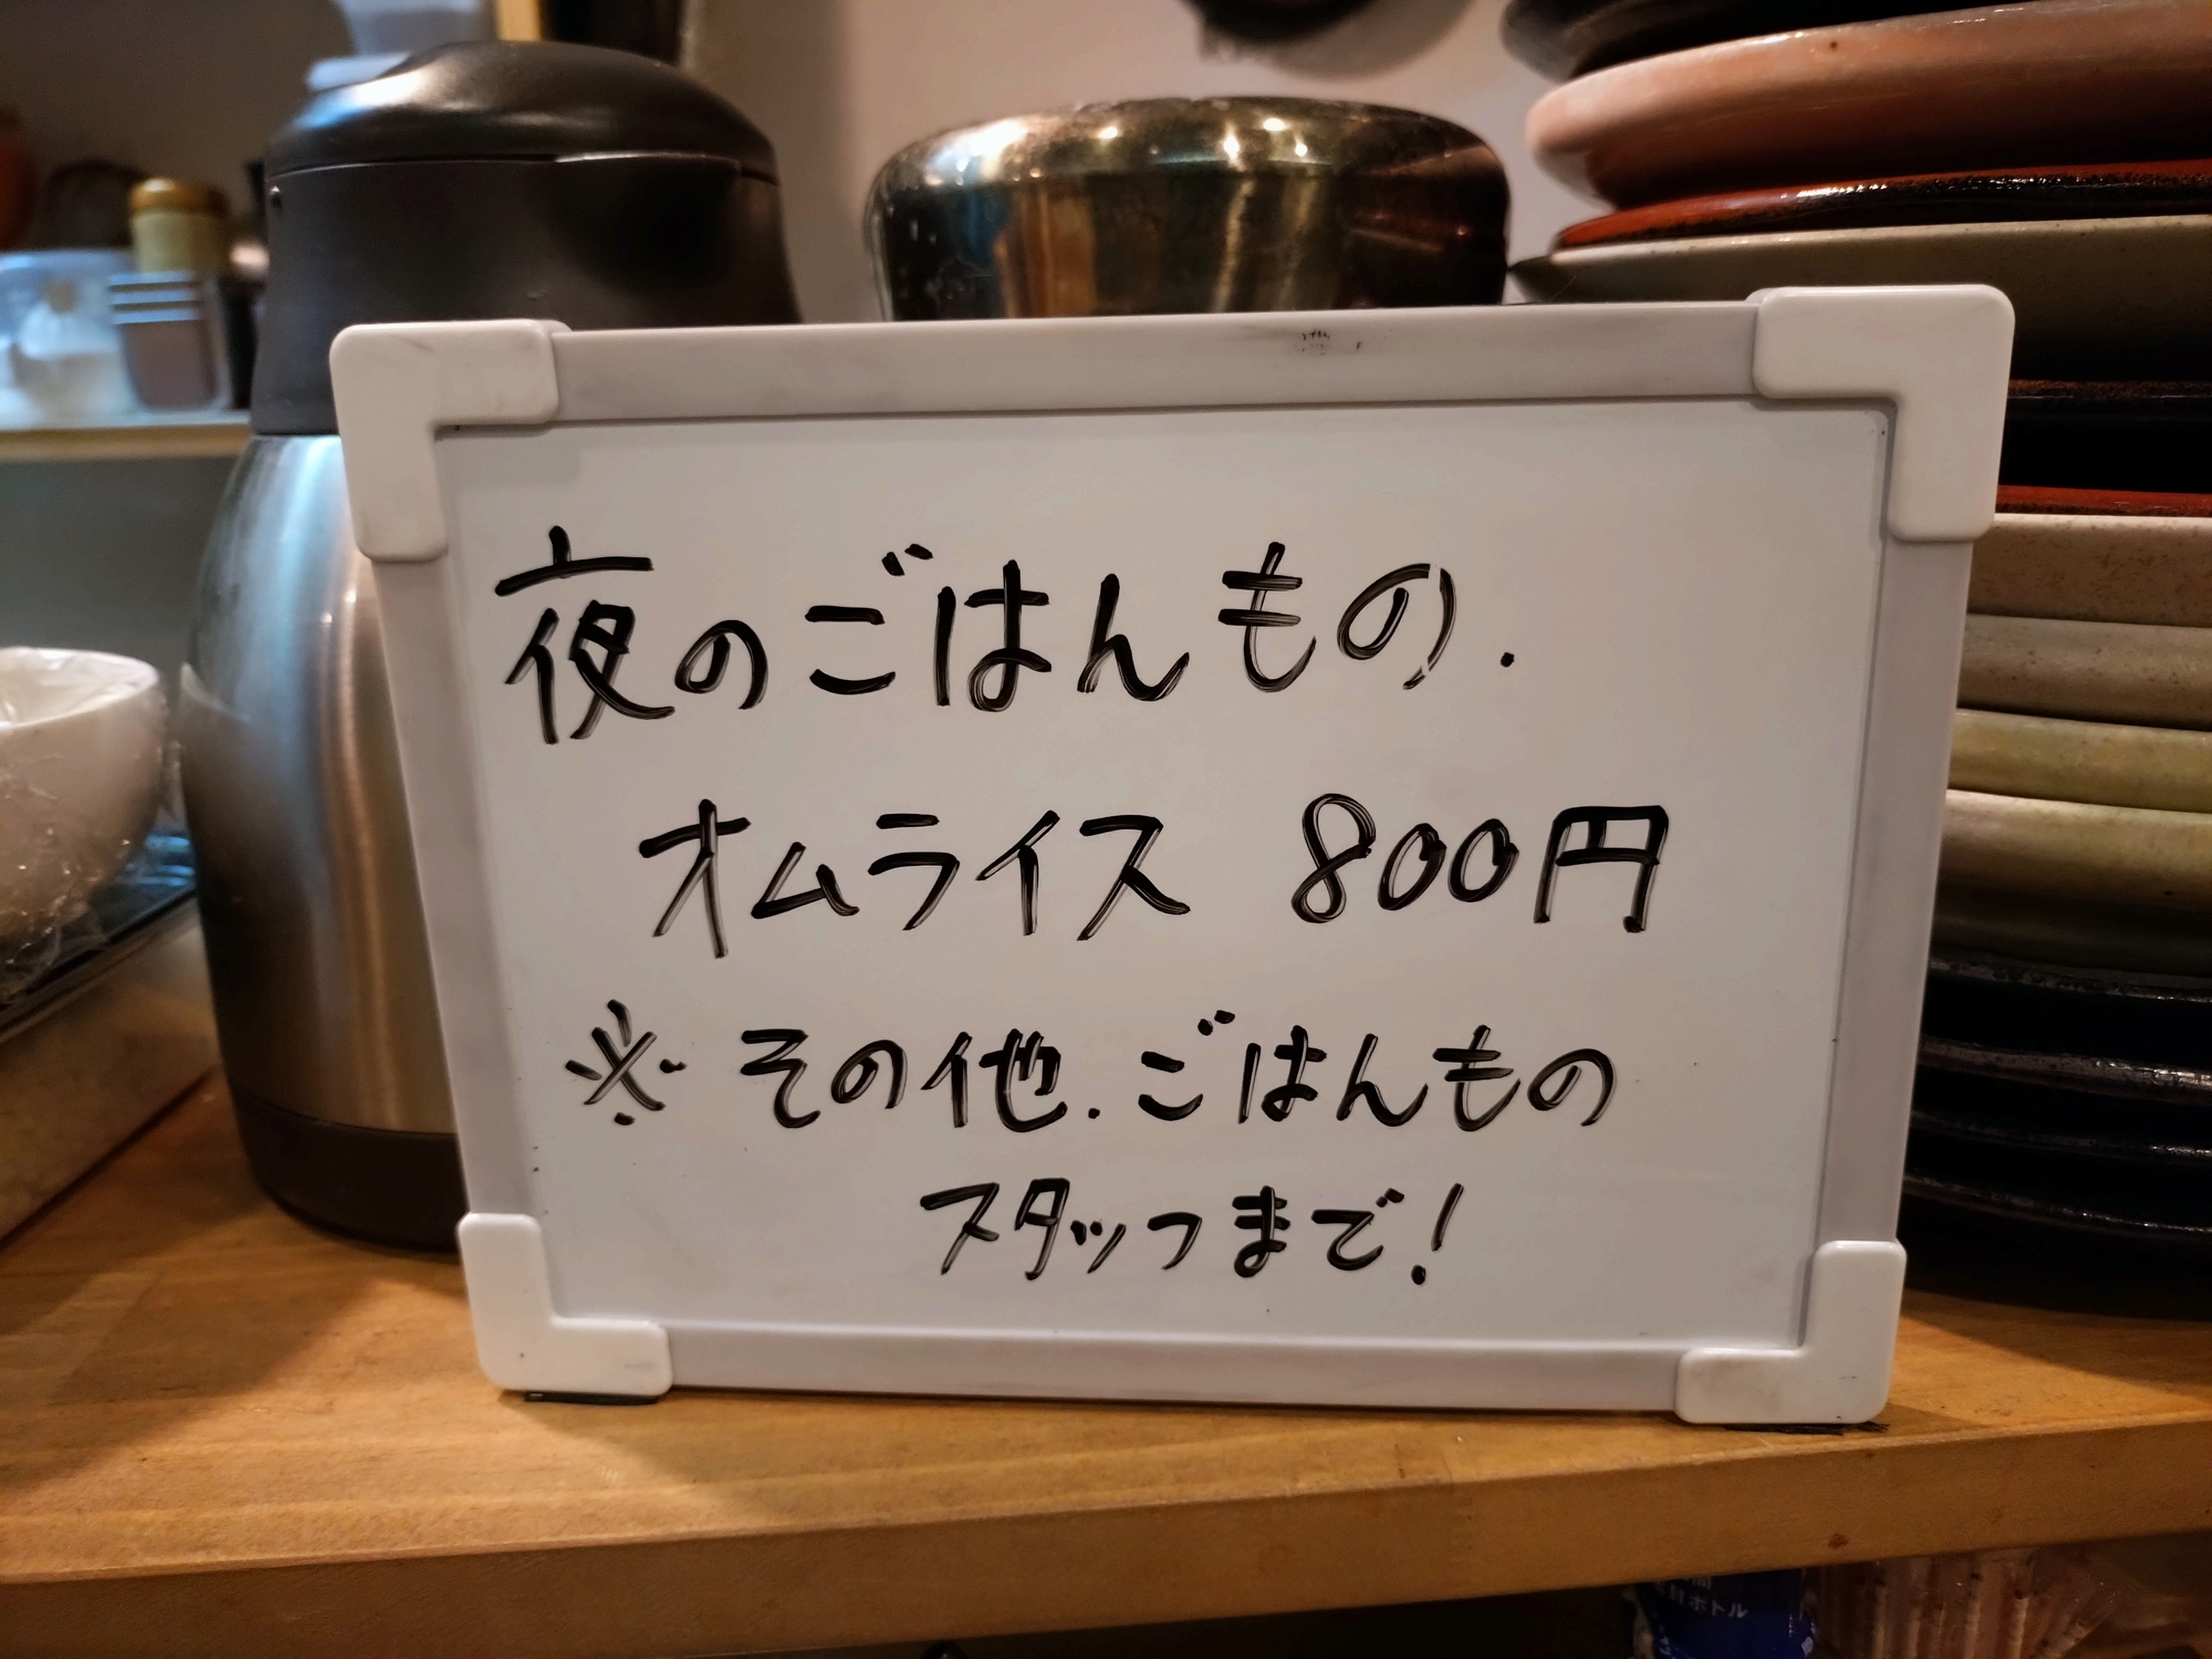 夜のごはんもの.
オムライス 800円
※ その他.ごはんもの
スタッフまで!
ボトル